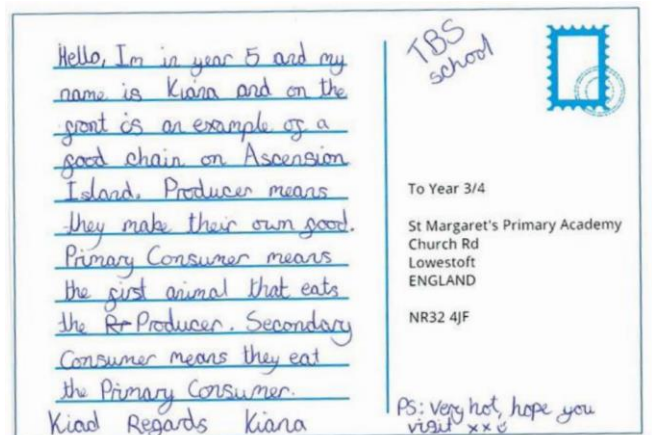 Hello, Im in year 5 and my
name is Kiana and on the
front is an example of a
food chain on Ascension
Island. Producer means
they make their own food.
Primary Consumer means
the first animal that eats
the Pr Producer. Secondary
Consumer means they eat
the Primary Consumer.
Kiad Regards Kiana
TBS
school
To Year 3/4
St Margaret's Primary Academy
Church Rd
Lowestoft
ENGLAND
NR32 4JF
PS: Very hot, hope you
visit xx☺